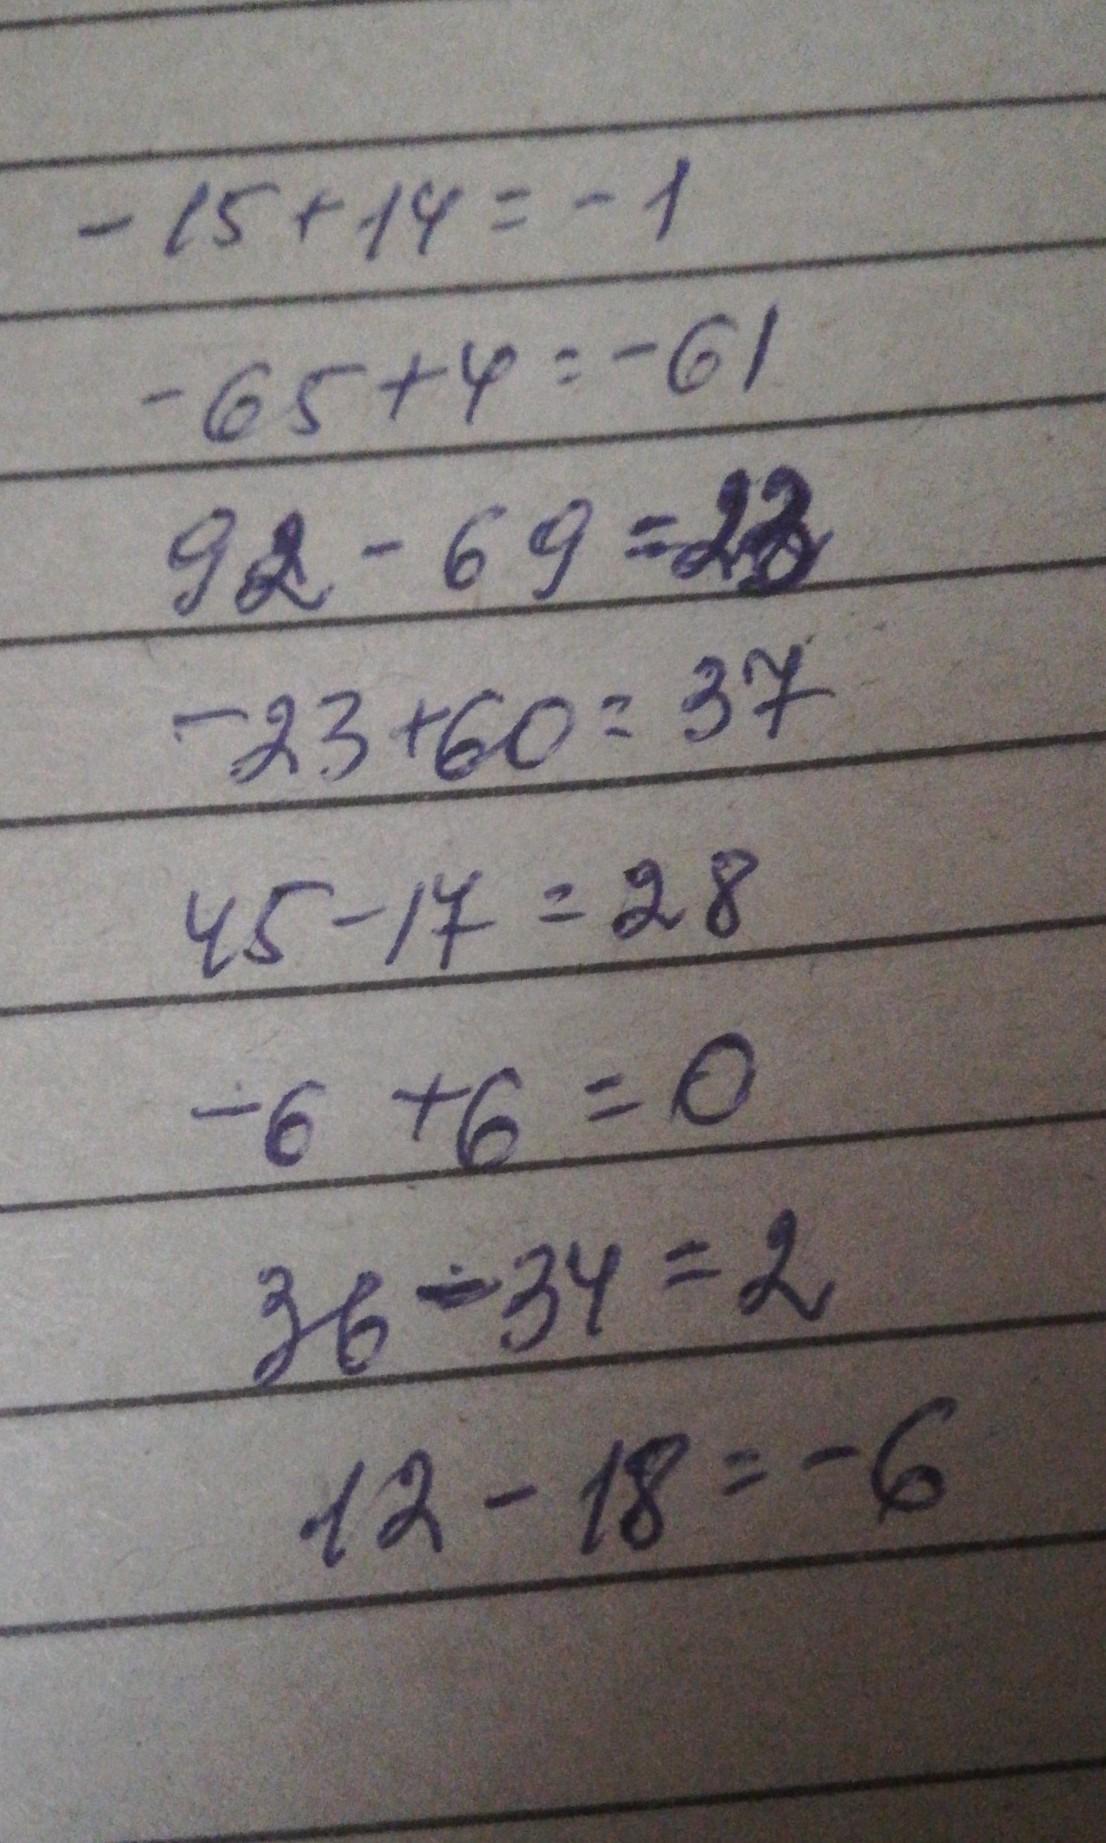 -15+14=-1
-65+4=-61
92-69=23
-23+60=37
45-17=28
-6+6=0
36-34=2
12-18=-6